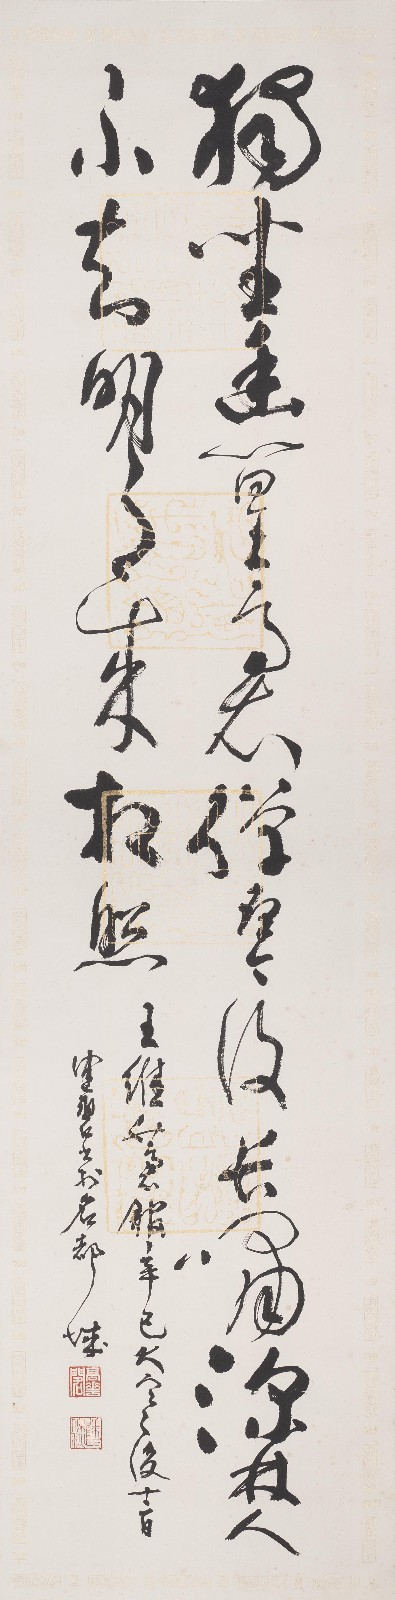 獨坐幽篁裏彈琴復長嘯深林人
不知明月來相照
王維竹裏館辛巳大後十二日
書於名都城